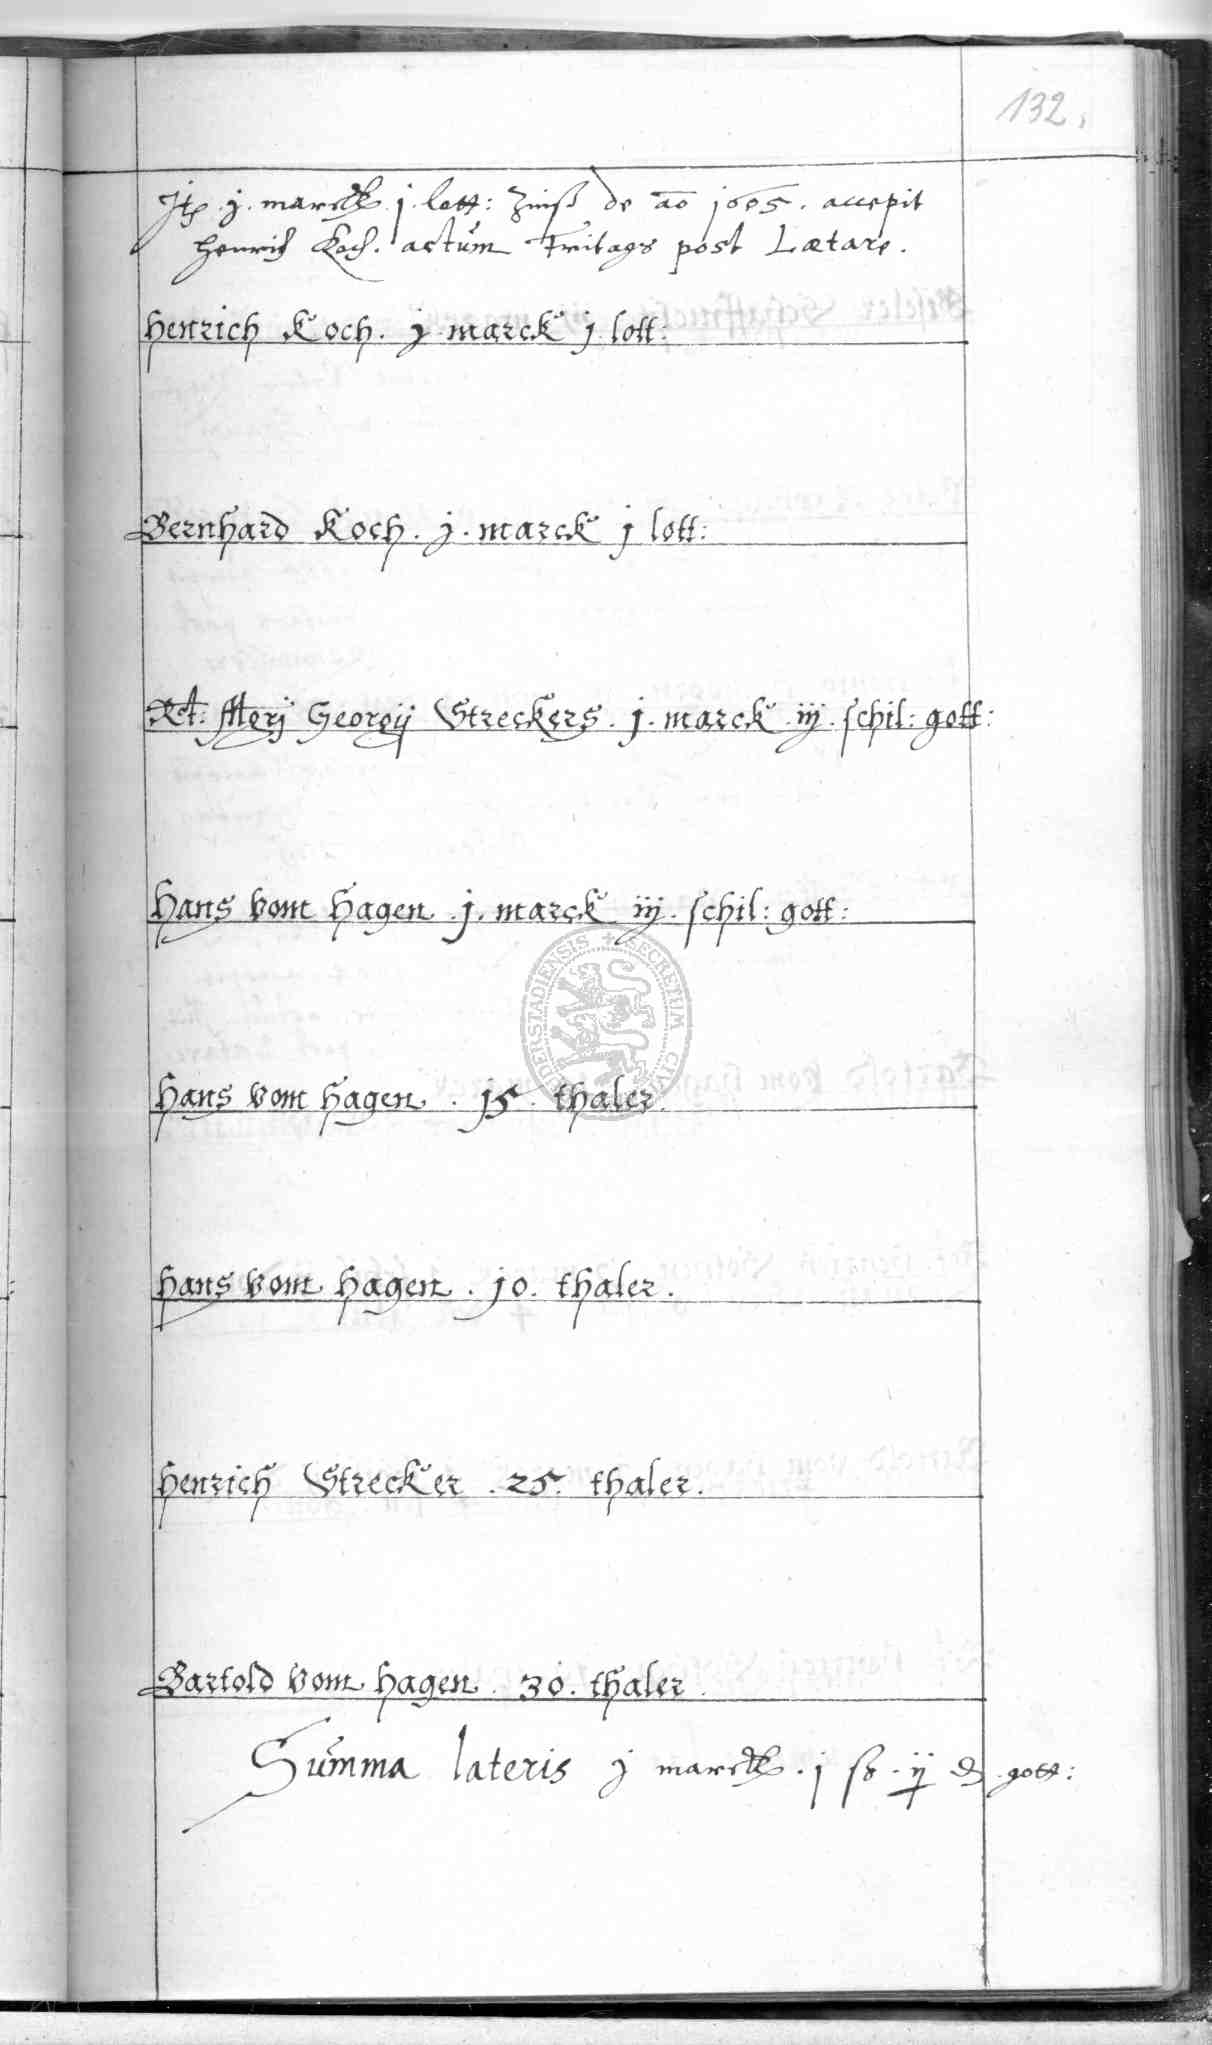 132.
Itē j. marck. j. lott: Zinß de aō 1605. accepit
Henrich Koch. actum Fritags post Lætare.
Henrich Koch. j. marck j lott:
Bernhard Koch. j. marck j lott:
Rt: Georgij Streckers. j. marck iij. schil: gott:
Hans vom Hagen. j. marck iij. schil: gott:
DERSTADIENSIS + SECRETUM
Hans vom Hagen. 15. thaler.
Hans vom Hagen. 10. thaler.
Henrich Strecker. 25. thaler.
Bartold vom Hagen. 30. thaler.
Summa lateris j marck. j ß. ij ₰ gott: